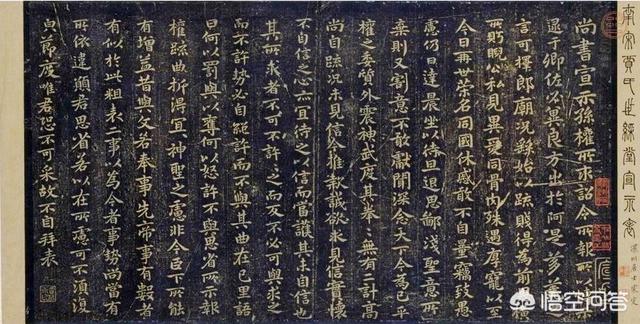 南宋賈氏世綵堂宣示表
尚書宣示孫權所求詔令所報所以博示
逮于卿佐必冀良方出於阿是芻蕘之
言可擇郎廟況繇始以疏賤得為前恩橫
所盱睨公私見異愛同骨肉殊遇厚寵以至
今日再世榮名同國休慼敢不自量竊致愚
慮仍日達晨坐以待旦退思鄙淺聖意所
棄則又割意不敢獻聞深念天下今為已平
權之委質外震神武度其拳〻無有二計高
尚自疏況未見信今推款誠欲求見信實懷
不自信之心亦宜待之以信而當護其未自信也
其所求者不可不許許之而反不必可與求之
而不許勢必自絕許而不與其曲在己里語
曰何以罰與以奪何以怒許不與思省所示報
權疏曲折得宜宜神聖之慮非今臣下所能
有增益昔與文若奉事先帝事有數者
有似於此粗表二事以為今者事勢尚當有
所依違願君思省若以在所慮可不須復
皃節度唯君恐不可采故不自拜表
悟空问答